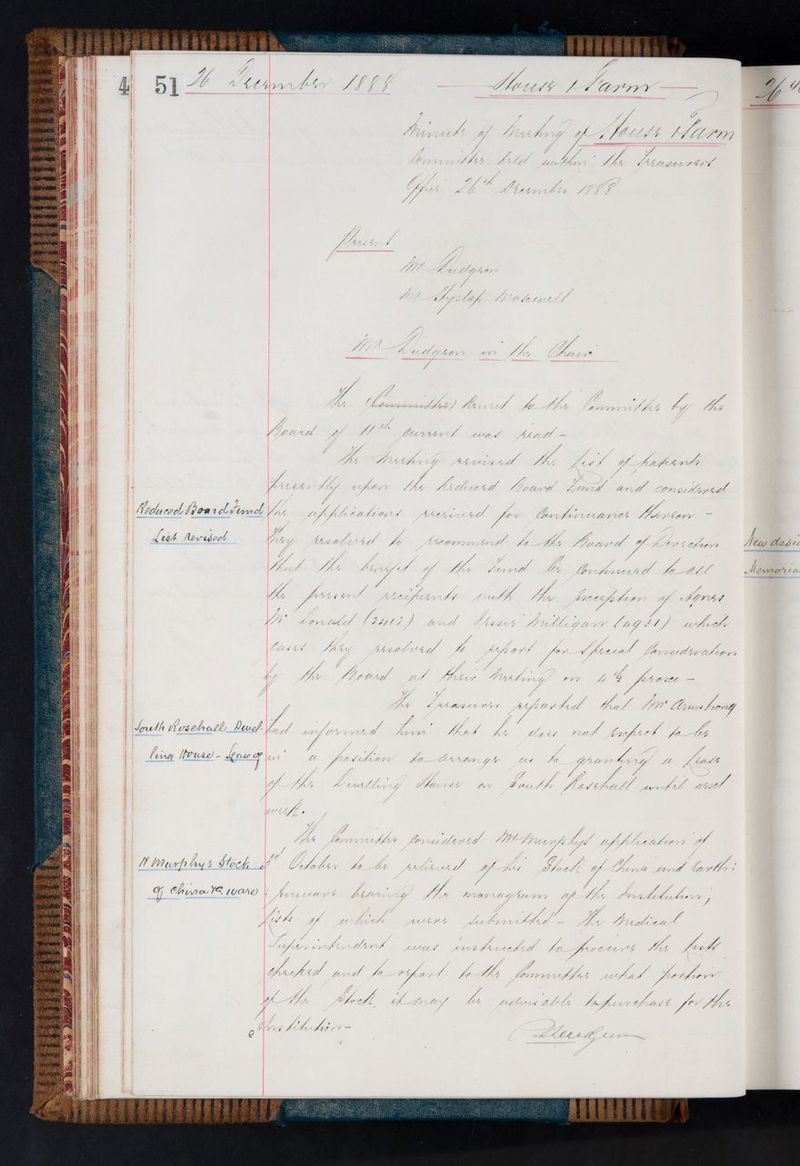 4
51
26 December 1888
House & Farm
26th
Minute of Meeting of House & Farm
Committee held within the Treasurers
Office 26th December 1888
Present
Mr Dudgeon
Mr Hyslop Maxwell
Mr Dudgeon in the Chair
The (Committee) Remit to the Committee by the
Board of 11th current was read -
The Meeting revised the list of patients
presently upon the Reduced Board Fund and considered
Reduced Board Fund
List Revised
the applications received for Continuance thereon -
They resolved to recommend to the Board of Direction
that the benefit of the Fund be Continued to all
the present recipients with the exception of Agnes
Mc Donald (2412) and Jessie Milligan which
cases they resolved to report for Special Consideration
by the Board at their Meeting on 4th proxo -
South Rosehall Dwel
ling House - Lease of
The Treasurer reported that Mr Armstrong
had informed him that he does not expect to be
in a position to arrange as to granting a Lease
of the Dwelling House on South Rosehall until next
week.
N Murphy's Stock
of China &c. ware
The Committee Considered Mr Murphys application of
3rd October to be relieved of his Stock of China and Earth:
:enware bearing the monogram of the Institution;
lists of which were submitted - The Medical
Superintendent was instructed to procure the lists
checked and to report to the Committee what portion
of the Stock it may be advisable to purchase for the
Institution -
Dudgeon
New
Memoria